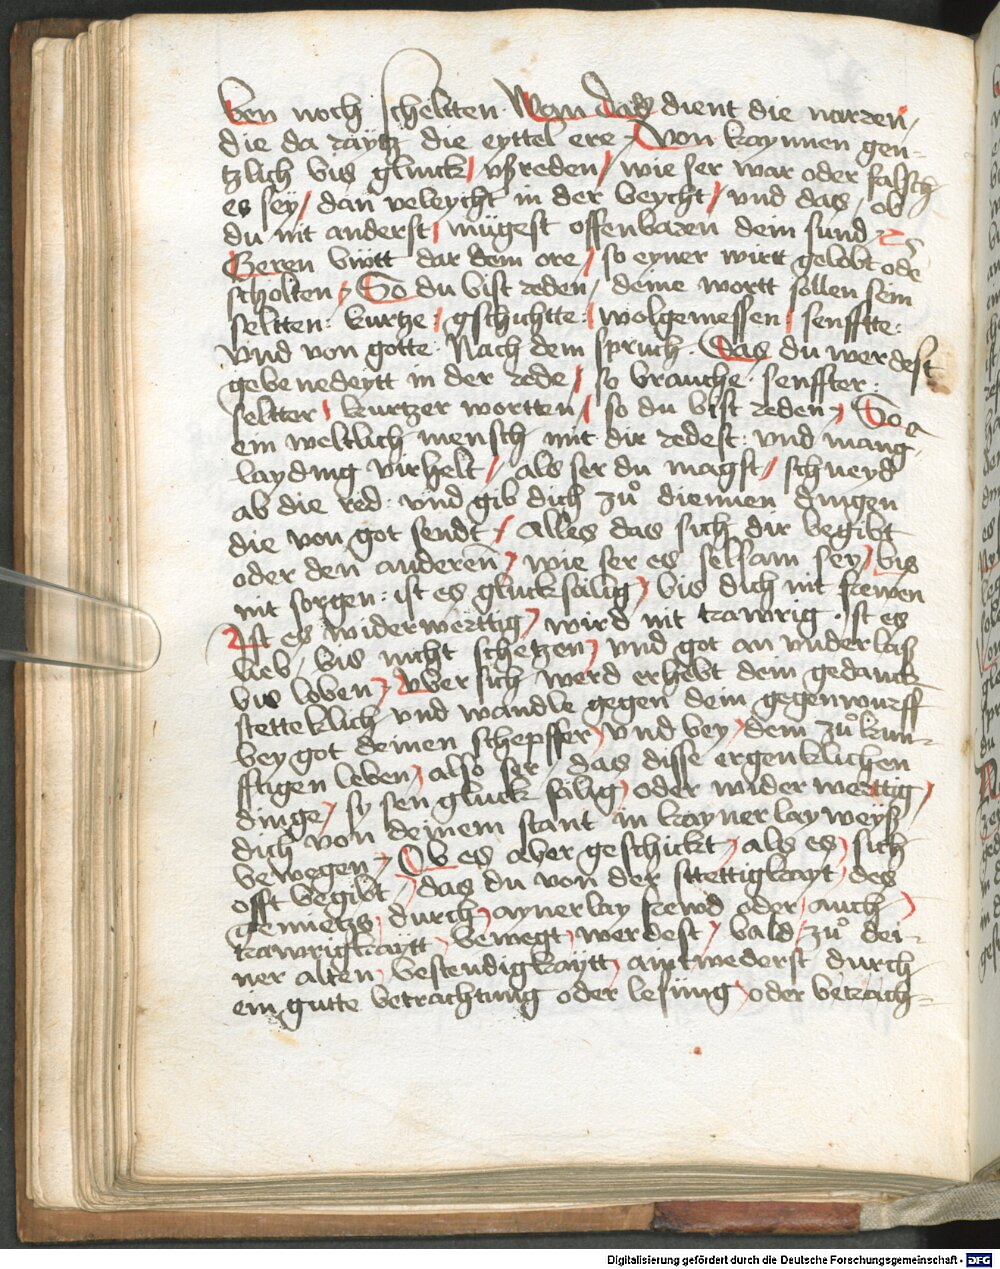 ben noch scheltten · Wan das dient die narren /
die da räytz die eyttel ere / Von kaynnen gen-
tzlich bis gluck / vsreden / wie ser war oder falsch
es sey / dan veleycht in der beycht / vnd das / ob
du nit anderst / mügest offenbaren dein sund
Geren biitt dar dem ore / so eyner wirt gelobt oder
scholten / So du bist reden / deine wortt sollen sein
seltten : kurtze : gschichtte : wolgemessen : senfftte :
vnd von gotte · Nach dem spruch · Das du werdest
gebenedeytt in der rede / so brauche senffter :
seltter / kurtzer wortten / so du bist reden / So
ein weltlich mensch mit dir redest : vnd mang
layding virhelt / als ser du magst / schneyd
ab die red · vnd gib dich zuo diennen dingen
die von got sendt / Alles das sich dir begibt
oder den anderen / wie ser es selsam sey / bis
nit sorgen : ist es glucksälig / bis dich nit frewen
Ist es widerwerttig / wird nit trawrig · ist es
lieb / bis nicht schetzen / vnd got an vnderlas
bis loben / vber sich werd erhebt dein gedanck
stetteklich vnd wandle gegen dem gegenwurff
bey got deinen schepffer / vnd bey dem zuokun-
fftigen leben / also ser / das disse ergenklichen
dinge / sy sen gluck sälig / oder widerwerttig /
dich von deinem stant in kaynerlay weyß
bewegen / Ob es aber geschickt / als es / sich
offt begibt / das du von der stettigkayt / des
gemietzs / durch aynerlay frewd oder auch /
trawrigkaytt / bewegt werdest / bald zuo dei-
ner alten bestendigkaytt / aintwederst durch
ein gutte betrachtung oder lesung / oder betrach-
Digitalisierung gefördert durch die Deutsche Forschungsgemeinschaft - DFG